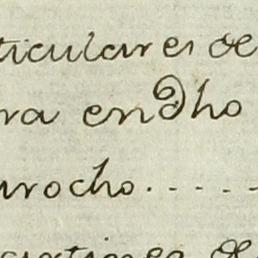 ticulares de
ra en dho
urocho. - - - -